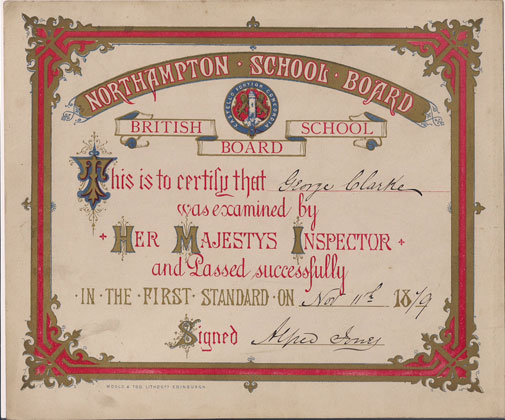 NORTHAMPTON · SCHOOL · BOARD
CASTELLO FORTIOR CONCORDIA
BRITISH SCHOOL
BOARD
This is to certify that George Clarke
was examined by
HER MAJESTYS INSPECTOR
and Passed successfully
IN · THE · FIRST · STANDARD · ON Nov 11th 1879
Signed Alfred Jones